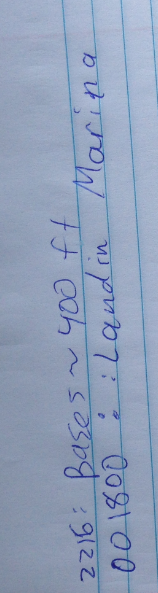 2216: Bases ~ 400 ft
001800 : : Landin Marina